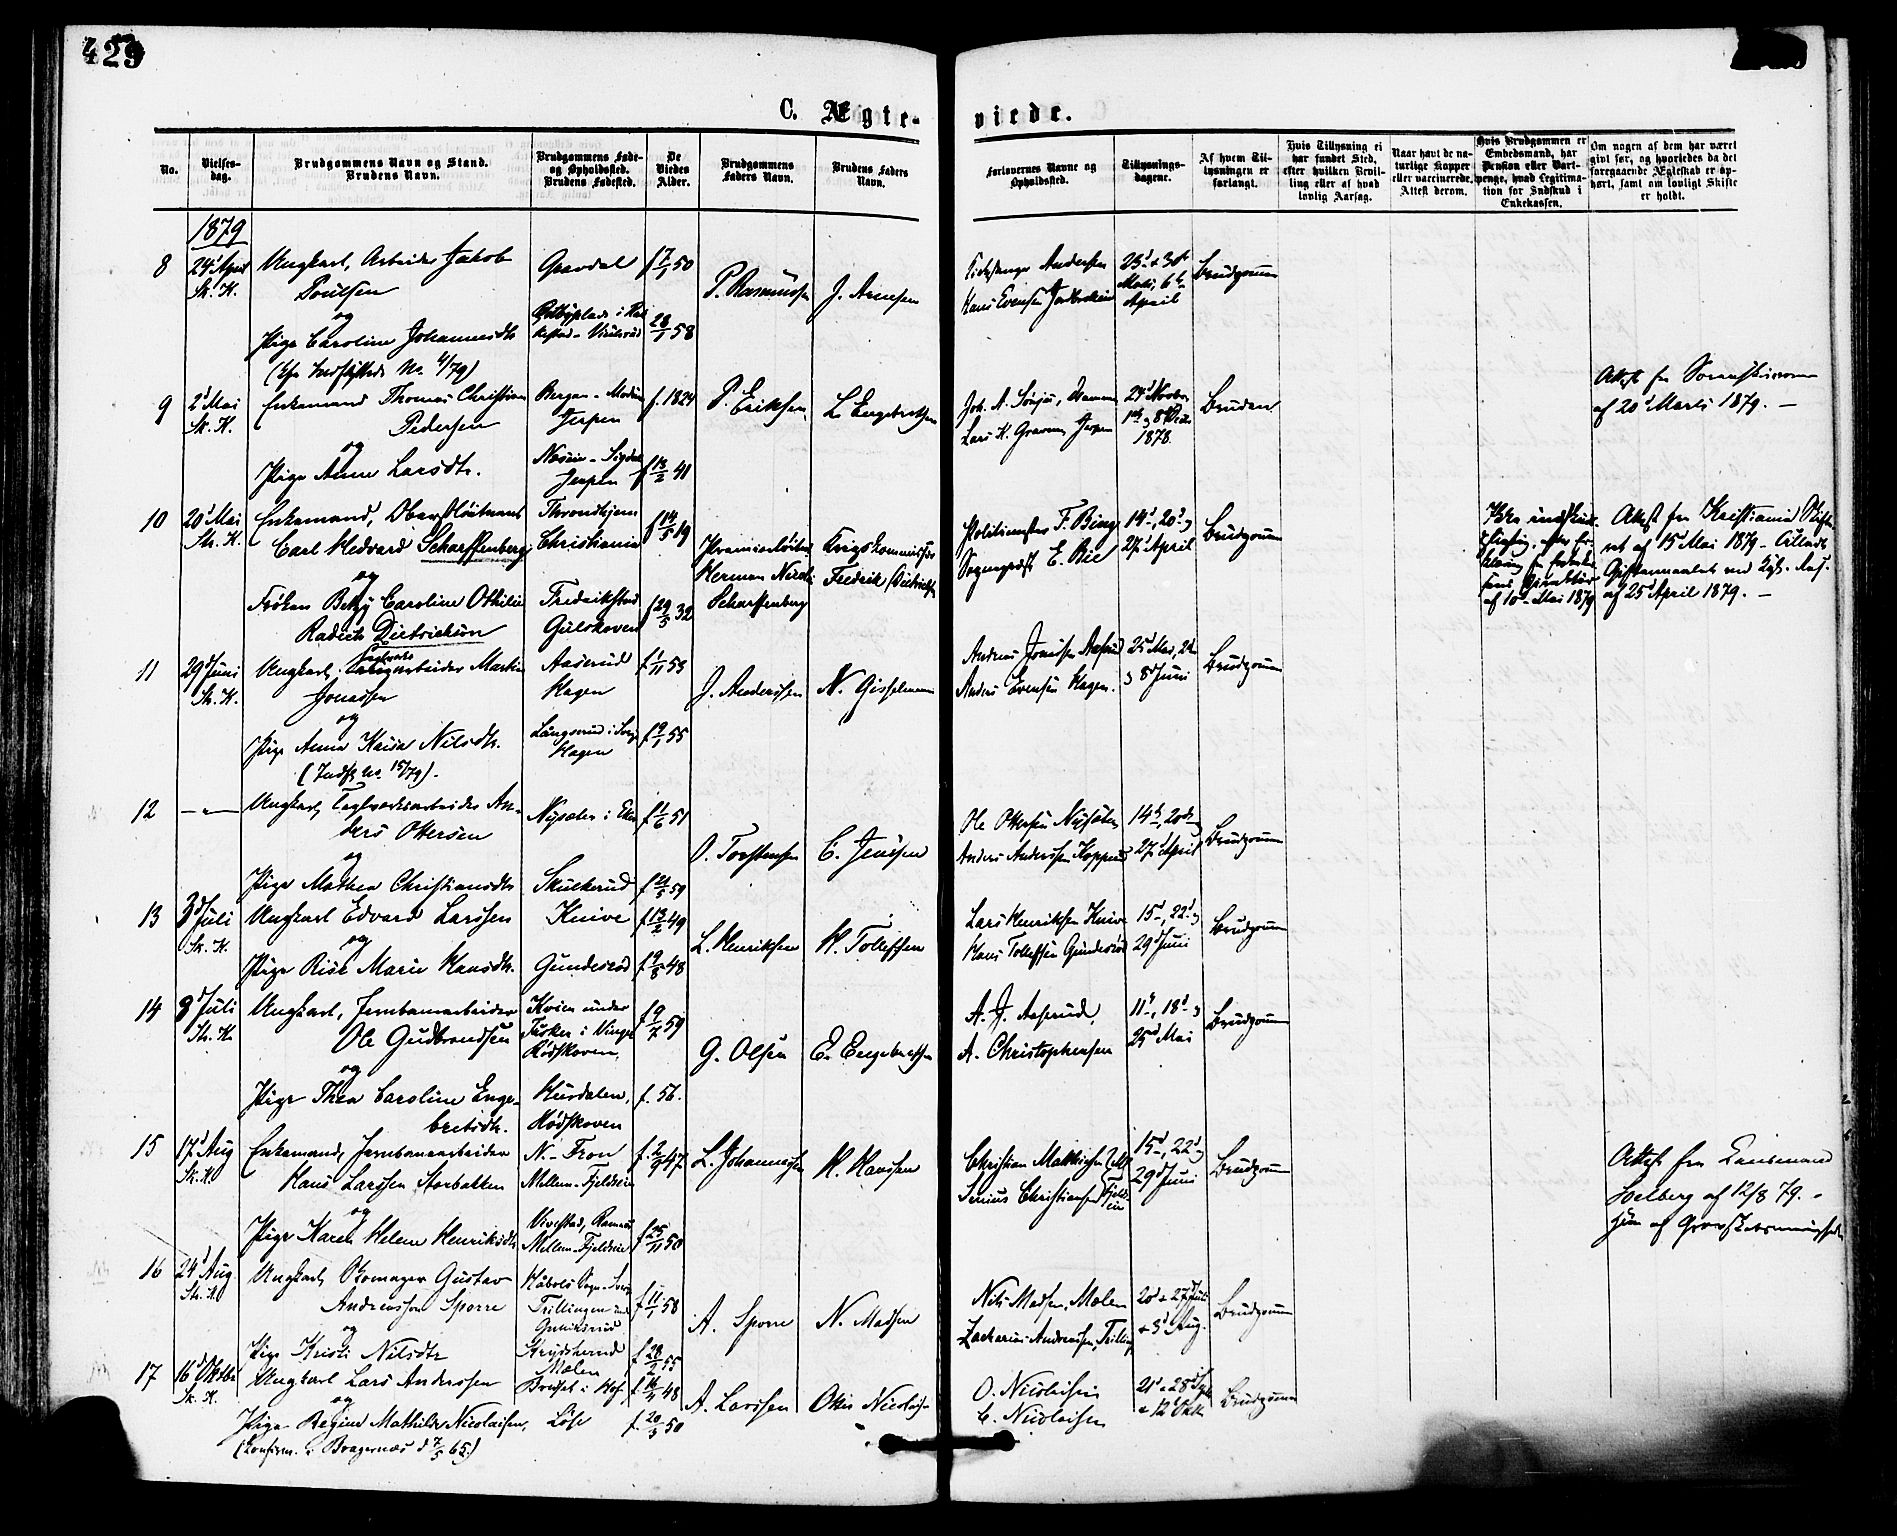 429
C. Ægte-
viede.
No.
Vielses-
dag.
Brudgommens Navn og Stand.
Brudens Navn.
Brudgommens Føde-
og Opholdssted.
Brudens Fødested.
De
Viedes
Alder.
Brudgommens
Faders Navn.
Brudens Faders
Navn.
Forlovernes Navne og
Opholdssted.
Tillysnings-
dagene.
Af hvem Til-
lysningen er
forlangt.
Hvis Tillysning ei
har fundet Sted,
efter hvilken Bevil-
ling eller af hvad
lovlig Aarsag.
Naar havt de na-
turlige Kopper
eller vaccinerede.
Attest derom.
Hvis Brudgommen er
Embedsmand, har
Pension eller Vart-
penge, hvad Legitima-
tion for Indskud i
Enkekassen.
Om nogen af dem har været
givt før, og hvorledes da det
foregaaende Ægteskab er op-
hørt, samt om lovligt Skifte
er holdt.
1879
8
24d April
St. K.
Ungkarl, Arbeider Jakob
Poulsen
og
Pige Caroline Johannesdtr
No. 4/79)
Gravdal
f 7/1 50
28/1 58
P. Rasmussen
J. Arnesen
Andersen
Hans Evensen
23d & 30t
Marts, 6te
April
Brudgommen
9
2d Mai
St. K.
Enkemand Thomas Christian
Pedersen
og
Pige Anne Larsdtr.
Bergan - Modum
Jerpen
Sigdal
Jerpen
f. 1824
f 13/2 41
P. Eriksen
L. Engebretsen
Joh. A.
Lars K. Jerpen
24d Novbr
1ste og 8de Dec.
1878.
Bruden
Attest fra
af 20d Marts 1879. —
10
20d Mai
St. K.
Enkemand, Oberstløitnant
Carl Hedvard Scharffenberg
og
Frøken Betzy Caroline Othilie
Radich Dietrichson
Throndhjem
Christiania
Fredrikstad
Gulskoven
f 14/5 19
f 29/5 32
Premierløitnant
Herman Nicolai
Scharffenberg
Krigskommissær
Fredrik Dietrichson
Politimester F. Bing
Sogneprest E.
14d, 20d og
27d April
Brudgommen
af 10d Mai 1879
Attest fra Kristiania Skifte-
ret af 15d Mai 1879 -
af 25d April 1879. —
11
29d Juni
St. K.
Ungkarl, Teglværks
arbeider Martin
Jonassen
og
Pige Anna Kaisa Nilsdtr.
(Indfl. No. 15/79).
Aaserud
Hagen
Långserud i Sverige
Hagen
f 1/11 53
f 9/1 55
J. Anderssen
N. Gisselman
Andreas Jonassen Aaserud
Anders Evensen Hagen.
25d Mai, 2d
og 8d Juni
Brudgommen
12
— " —
Ungkarl, Teglværksarbeider An-
ders Ottersen
og
Pige Mathea Christiansdtr
Nysæter i Eker
Skulkerud
f 1/6 51
f 21/5 59
O. Torstensen
C. Jenssen
Ole Ottersen Nysæter
Anders Anderssen Kopperud
14d, 20de og
27d April
Brudgommen
13
3d Juli
St. K.
Ungkarl Edvard Larssen
og
Pige Rise Marie Hansdtr.
Knive
Gundesrød
f 13/2 49
f 9/8 48
L. Henriksen
H. Tollefsen
Lars Henriksen Knive
Hans Tollefsen Gundesrød
15d, 22d og
29d Juni
Brudgommen
14
8d Juli
St. K.
Ungkarl, Jernbanearbeider
Ole Gudbrandsen
og
Pige Thea Caroline Enge-
bretsdtr.
Kvien under
Tusker i Vinger
Rødskoven
Hurdalen,
Rødskoven
f 9/7 59
f. 56.
G. Olsen
E. Engebretsen
A. J. Aaserud,
A. Christophersen
11d, 18d og
25d Mai
Brudgommen
15
17d Aug
St. K.
Enkemand, Jernbanearbeider
Hans Larssen Storbakken
og
Pige Karen Helene Henriksdtr
N.-Fron
Mellem-Fjeldseie
Vivestad, Ramnæs
Mellem-Fjeldseie
f. 2/9 47
f 25/11 50
L. Johannesen
H. Hanssen
Christian Matthissen
Senius Christiansen
15d, 22d og
29d Juni
Brudgommen
Attest fra Lensmand
Solberg af 12/8 79. -
16
24d Aug
St. K.
Ungkarl, Skomager Gustav
Andreasson Sporre
og
Pige Kristi Nilsdtr
Håbols Sogn - Sverige
Trillingen
Krydsherred
Mælen
f 11/1 58
f 28/2 55
A. Sporre
N. Madsen
Nils Madsen, Mælen
Zacharias Andreassen,
20d & 27d Juli
& 3d Aug.
Brudgommen
17
16d Oktbr
St. K.
Ungkarl Lars Andersen
og
Pige Regine Mathilde Nicolaisen,
(Konfirm. i Bragernæs d 7/5 65.)
i Hof
Løse
f 48
f. 20/5 50
A. Larssen
Nicolaisen
O. Nicolaisen
C. Nicolaisen
21d & 28d Sept.
& 12d Okt.
Brudgommen